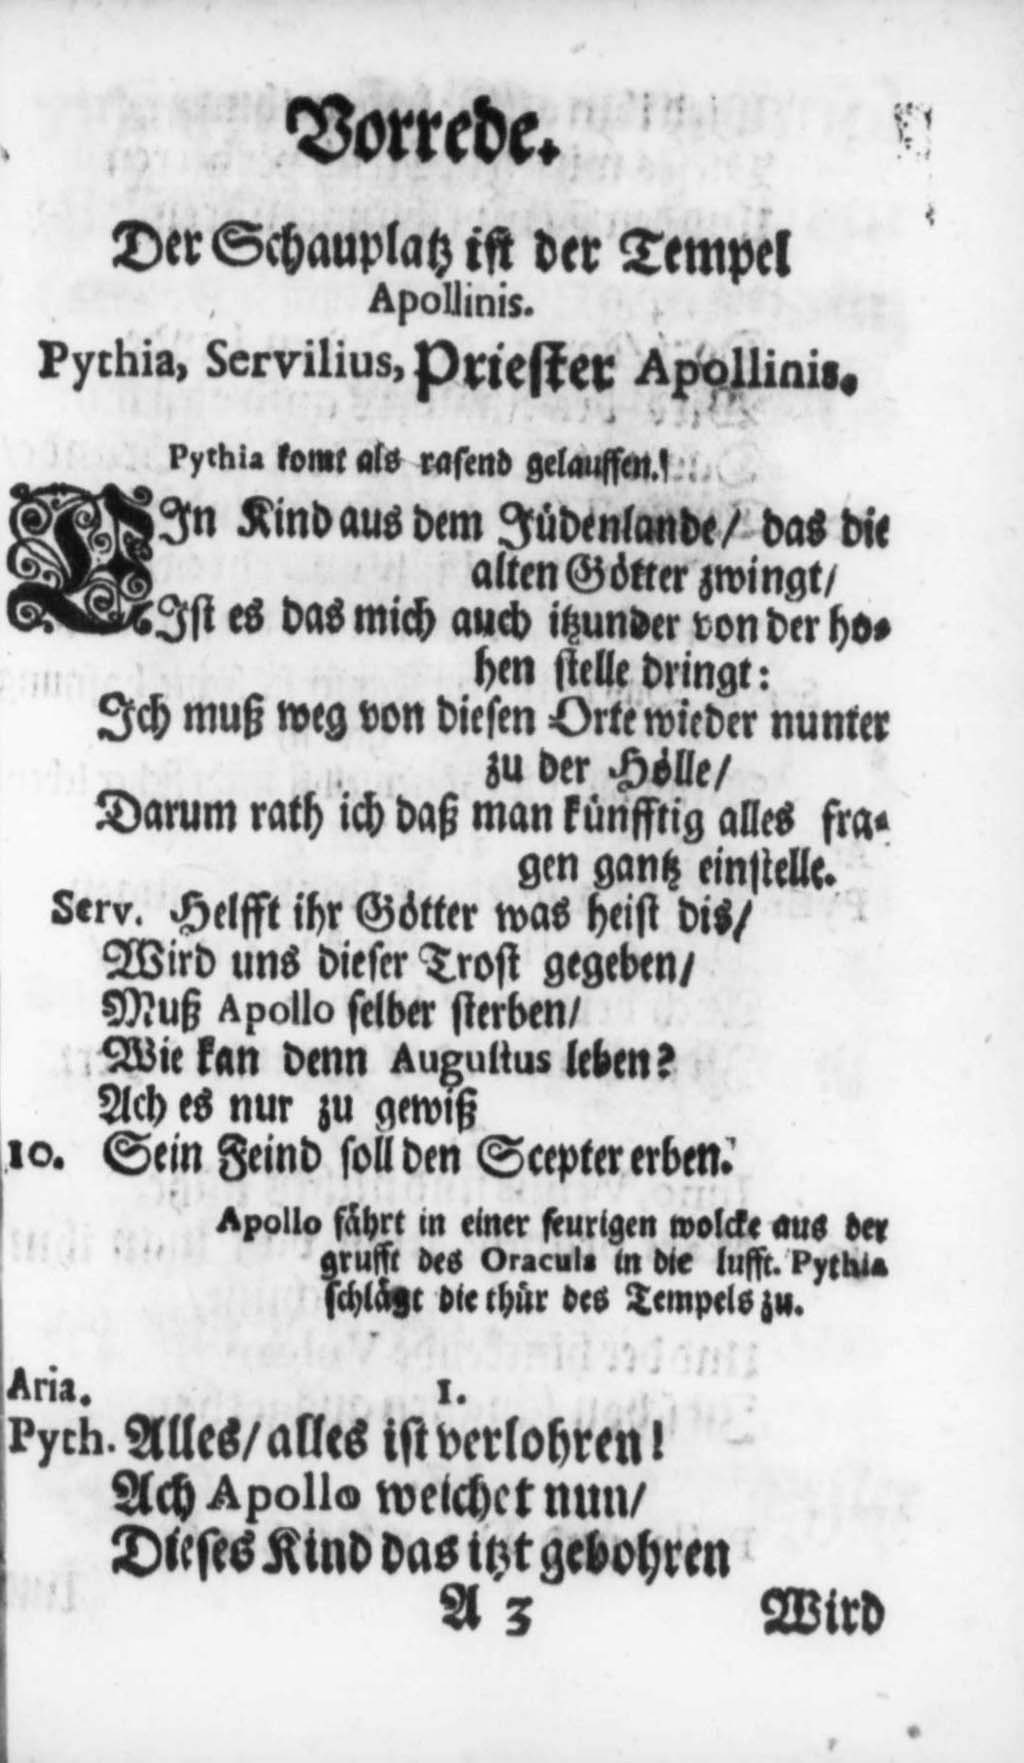 Vorrede.
Der Schauplatz ist der Tempel
Apollinis.
Pythia, Servilius, Priester Apollinis.
Pythia komt als rasend gelauffen.
EIn Kind aus dem Jüdenlande/ das die
alten Götter zwingt/
Ist es das mich auch itzunder von der ho-
hen stelle dringt:
Ich muß weg von diesen Orte wieder nunter
zu der Hölle/
Darum rath ich daß man künfftig alles fra-
gen gantz einstelle.
Serv. Helfft ihr Götter was heist dis/
Wird uns dieser Trost gegeben/
Muß Apollo selber sterben/
Wie kan denn Augustus leben?
Ach es nur zu gewiß
10. Sein Feind soll den Scepter erben.
Apollo fährt in einer feurigen wolcke aus der
grufft des Oraculs in die lufft. Pythia
schlägt die thür des Tempels zu.
Aria. 1.
Pyth. Alles/ alles ist verlohren!
Ach Apollo weichet nun/
Dieses Kind das itzt gebohren
A 3 Wird